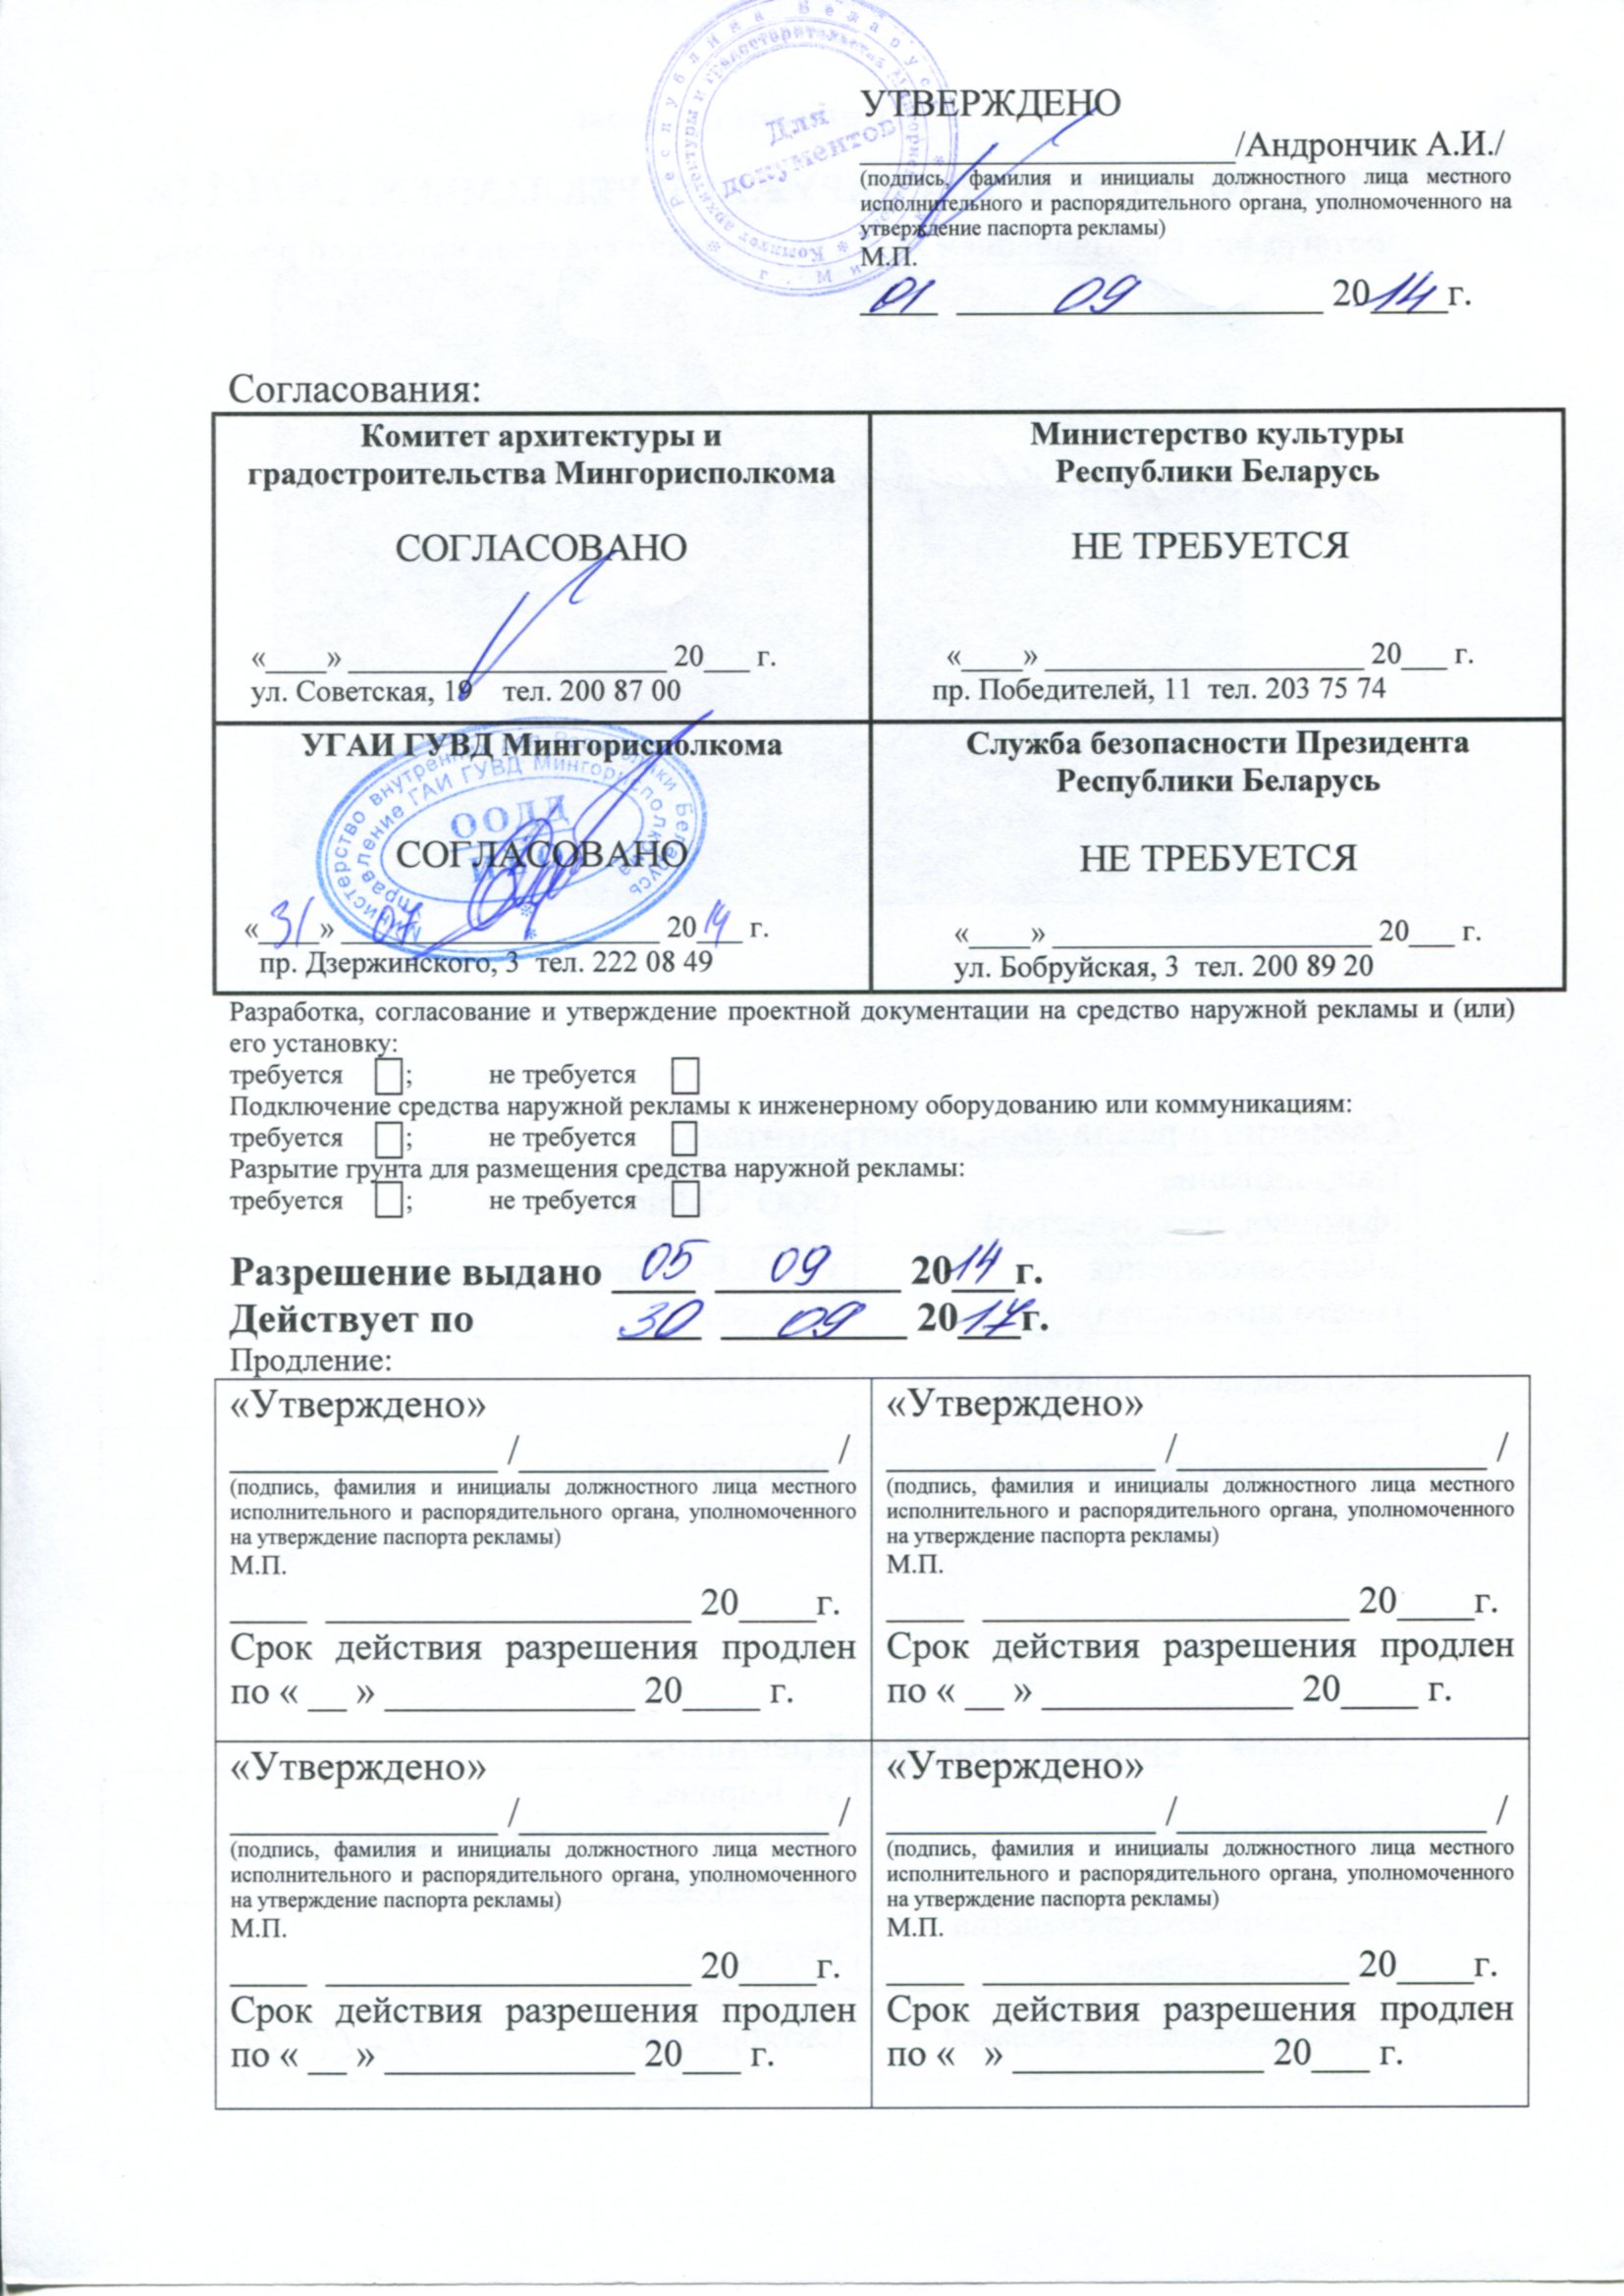 Республика Беларусь
Комитет архитектуры и градостроительства Мингорисполкома
г. Минск
Для
документов
УТВЕРЖДЕНО
/Андрончик А.И./
(подпись, фамилия и инициалы должностного лица местного
исполнительного и распорядительного органа, уполномоченного на
утверждение паспорта рекламы)
М.П.
01 09 2014г.
Согласования:
Комитет архитектуры и
градостроительства Мингорисполкома
СОГЛАСОВАНО
«____» ____________________ 20___ г.
ул. Советская, 19 тел. 200 87 00
Министерство культуры
Республики Беларусь
НЕ ТРЕБУЕТСЯ
«____» ____________________ 20___ г.
пр. Победителей, 11 тел. 203 75 74
УГАИ ГУВД Мингорисполкома
Министерство внутренних дел Республики Беларусь
Управление ГАИ ГУВД Мингорисполкома
ООДД
СОГЛАСОВАНО
«31» 07 2014 г.
пр. Дзержинского, 3 тел. 222 08 49
Служба безопасности Президента
Республики Беларусь
НЕ ТРЕБУЕТСЯ
«____» ____________________ 20___ г.
ул. Бобруйская, 3 тел. 200 89 20
Разработка, согласование и утверждение проектной документации на средство наружной рекламы и (или)
его установку:
требуется ; не требуется
Подключение средства наружной рекламы к инженерному оборудованию или коммуникациям:
требуется ; не требуется
Разрытие грунта для размещения средства наружной рекламы:
требуется ; не требуется
Разрешение выдано 05 09 2014г.
Действует по 30 09 2017г.
Продление:
«Утверждено»
______________ /________________ /
(подпись, фамилия и инициалы должностного лица местного
исполнительного и распорядительного органа, уполномоченного
на утверждение паспорта рекламы)
М.П.
____ ___________________ 20____г.
Срок действия разрешения продлен
по « __ » _____________ 20____ г.
«Утверждено»
______________ /________________ /
(подпись, фамилия и инициалы должностного лица местного
исполнительного и распорядительного органа, уполномоченного
на утверждение паспорта рекламы)
М.П.
____ ___________________ 20____г.
Срок действия разрешения продлен
по « __ » _____________ 20____ г.
«Утверждено»
______________ /________________ /
(подпись, фамилия и инициалы должностного лица местного
исполнительного и распорядительного органа, уполномоченного
на утверждение паспорта рекламы)
М.П.
____ ___________________ 20____г.
Срок действия разрешения продлен
по « __ » _____________ 20___ г.
«Утверждено»
______________ /________________ /
(подпись, фамилия и инициалы должностного лица местного
исполнительного и распорядительного органа, уполномоченного
на утверждение паспорта рекламы)
М.П.
____ ___________________ 20____г.
Срок действия разрешения продлен
по « » _____________ 20___ г.